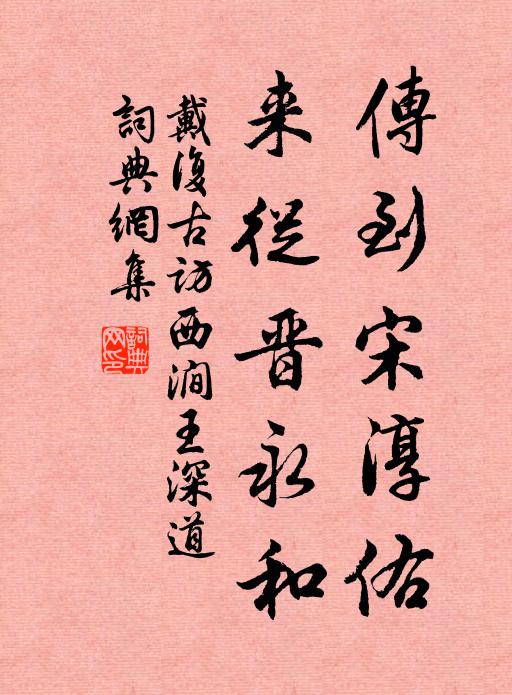 傳到宋淳佑
来從晋永和
戴復古访西澗王深道
詞典網集
詞典网印